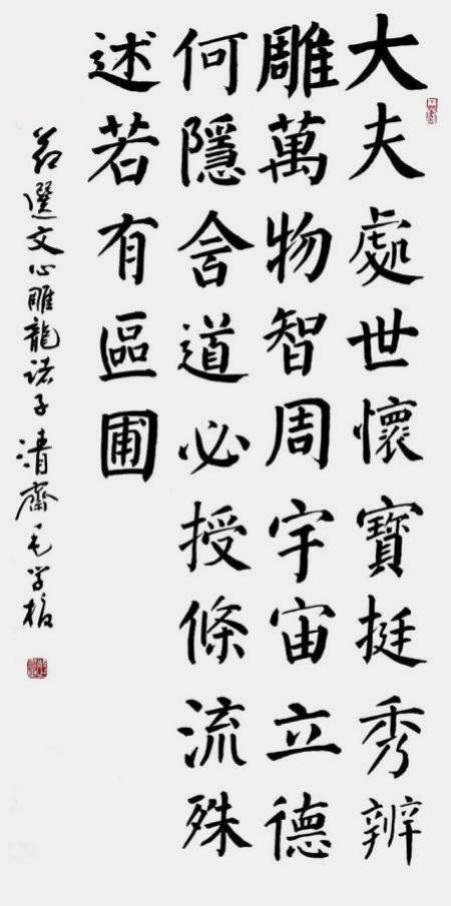 大夫處世懷寶挺秀辨
雕萬物智周宇宙立德
何隱含道必授條流殊
述若有區囿
節選文心雕龍諸子清齋毛学